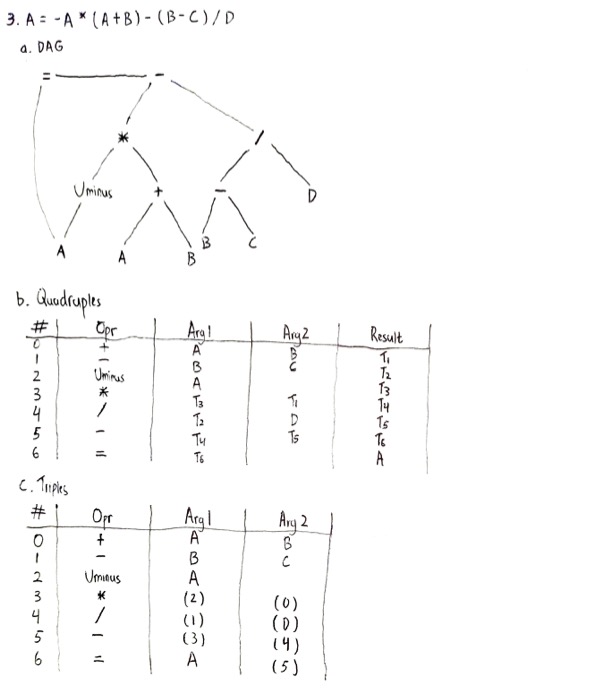 3. A = -A * (A+B) - (B-C) / D
a. DAG
= -
* /
Uminus + - D
A A B B C
b. Quadruples
# Opr Arg1 Arg2 Result
0 + A B T1
1 - B C T2
2 Uminus A T3
3 * T3 T1 T4
4 / T2 D T5
5 - T4 T5 T6
6 = T6 A
c. Triples
# Opr Arg1 Arg2
0 + A B
1 - B C
2 Uminus A
3 * (2) (0)
4 / (1) (D)
5 - (3) (4)
6 = A (5)